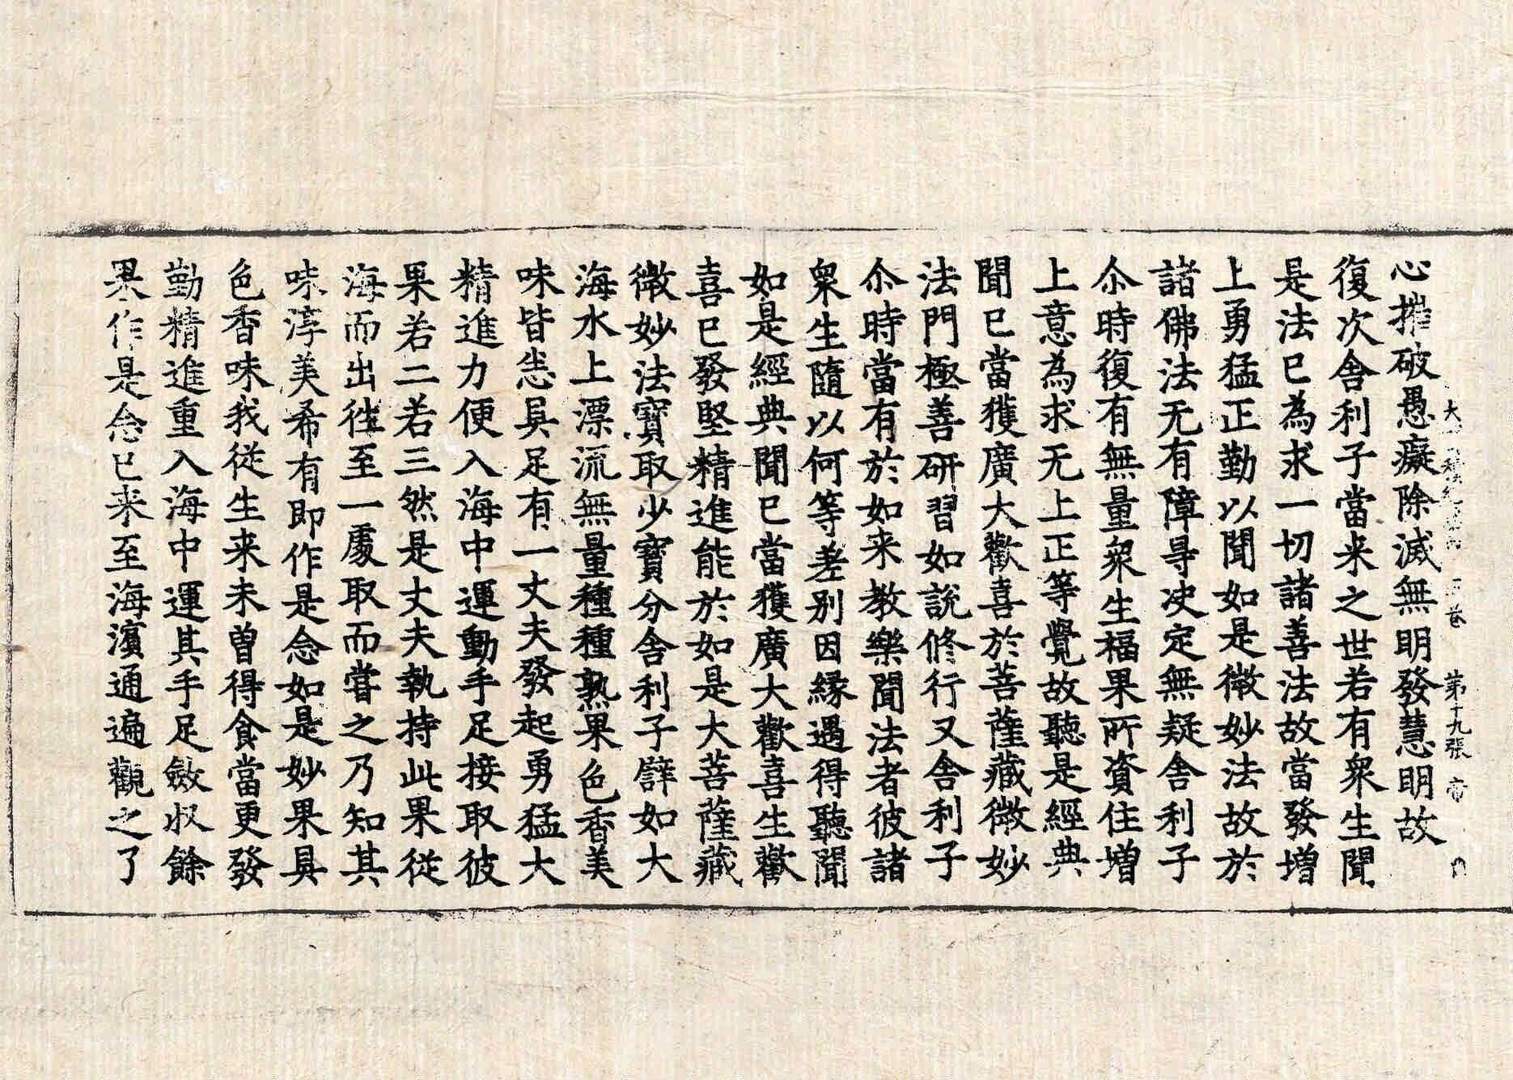 心摧破愚癡除滅無明發慧明故
大 積経 五 卷 第十九張 帝
復次舎利子當来之世若有衆生聞
是法已為求一切諸善法故當發增
上勇猛正勤以聞如是微妙法故於
諸佛法无有障㝵决定無疑舎利子
尒時復有無量衆生福果所資住增
上意為求无上正等覺故聽是經典
聞已當獲廣大歡喜於菩薩藏微妙
法門極善研習如說修行又舎利子
尒時當有於如来教樂聞法者彼諸
衆生隨以何等差別因縁遇得聽聞
如是經典聞已當獲廣大歡喜生歡
喜已發堅精進能於如是大菩薩藏
微妙法寶取少寶分舎利子譬如大
海水上漂流無量種種熟果色香美
味皆悉具足有一丈夫發起勇猛大
精進力便入海中運動手足接取彼
果若二若三然是丈夫執持此果從
海而出往至一處取而甞之乃知其
味淳美希有即作是念如是妙果具
色香味我從生来未曾得食當更發
勤精進重入海中運其手足斂収餘
果作是念已来至海濱通遍觀之了